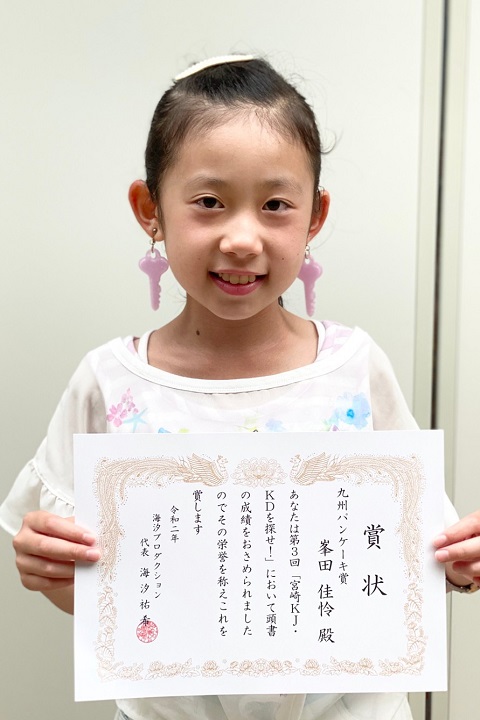 賞状
九州パンケーキ賞
峯田 佳怜 殿
あなたは第3回「宮崎KJ・
KDを探せ!」において頭書
の成績をおさめられました
のでその栄誉を称えこれを
賞します
令和二年
海汐プロダクション
代表 海汐 祐香